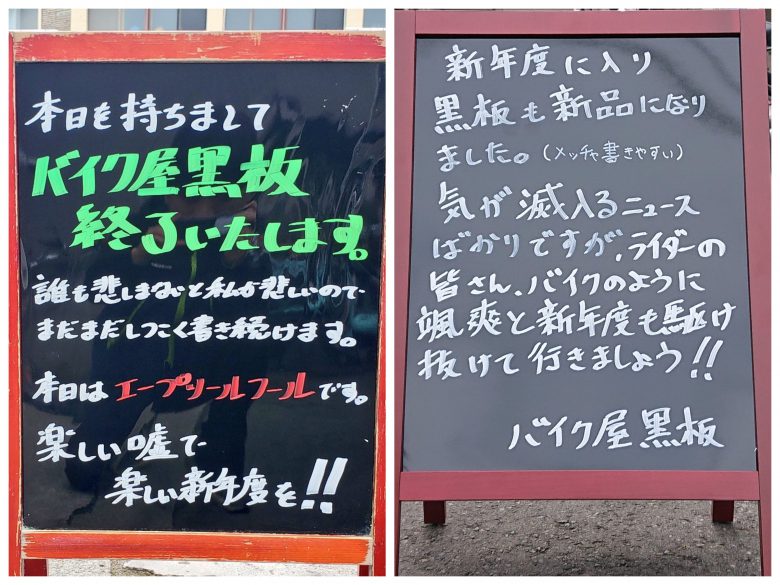 本日を持ちまして
バイク屋黒板
終了いたします。
誰も悲しまないと私が悲しいので
まだまだしつこく書き続けます。
本日はエープリールフールです。
楽しい嘘で
楽しい新年度を!!
新年度に入り
黒板も新品になり
ました。(メッチャ書きやすい)
気が滅入るニュース
ばかりですが、ライダーの
皆さん、バイクのように
颯爽と新年度も駆け
抜けて行きましょう!!
バイク屋黒板